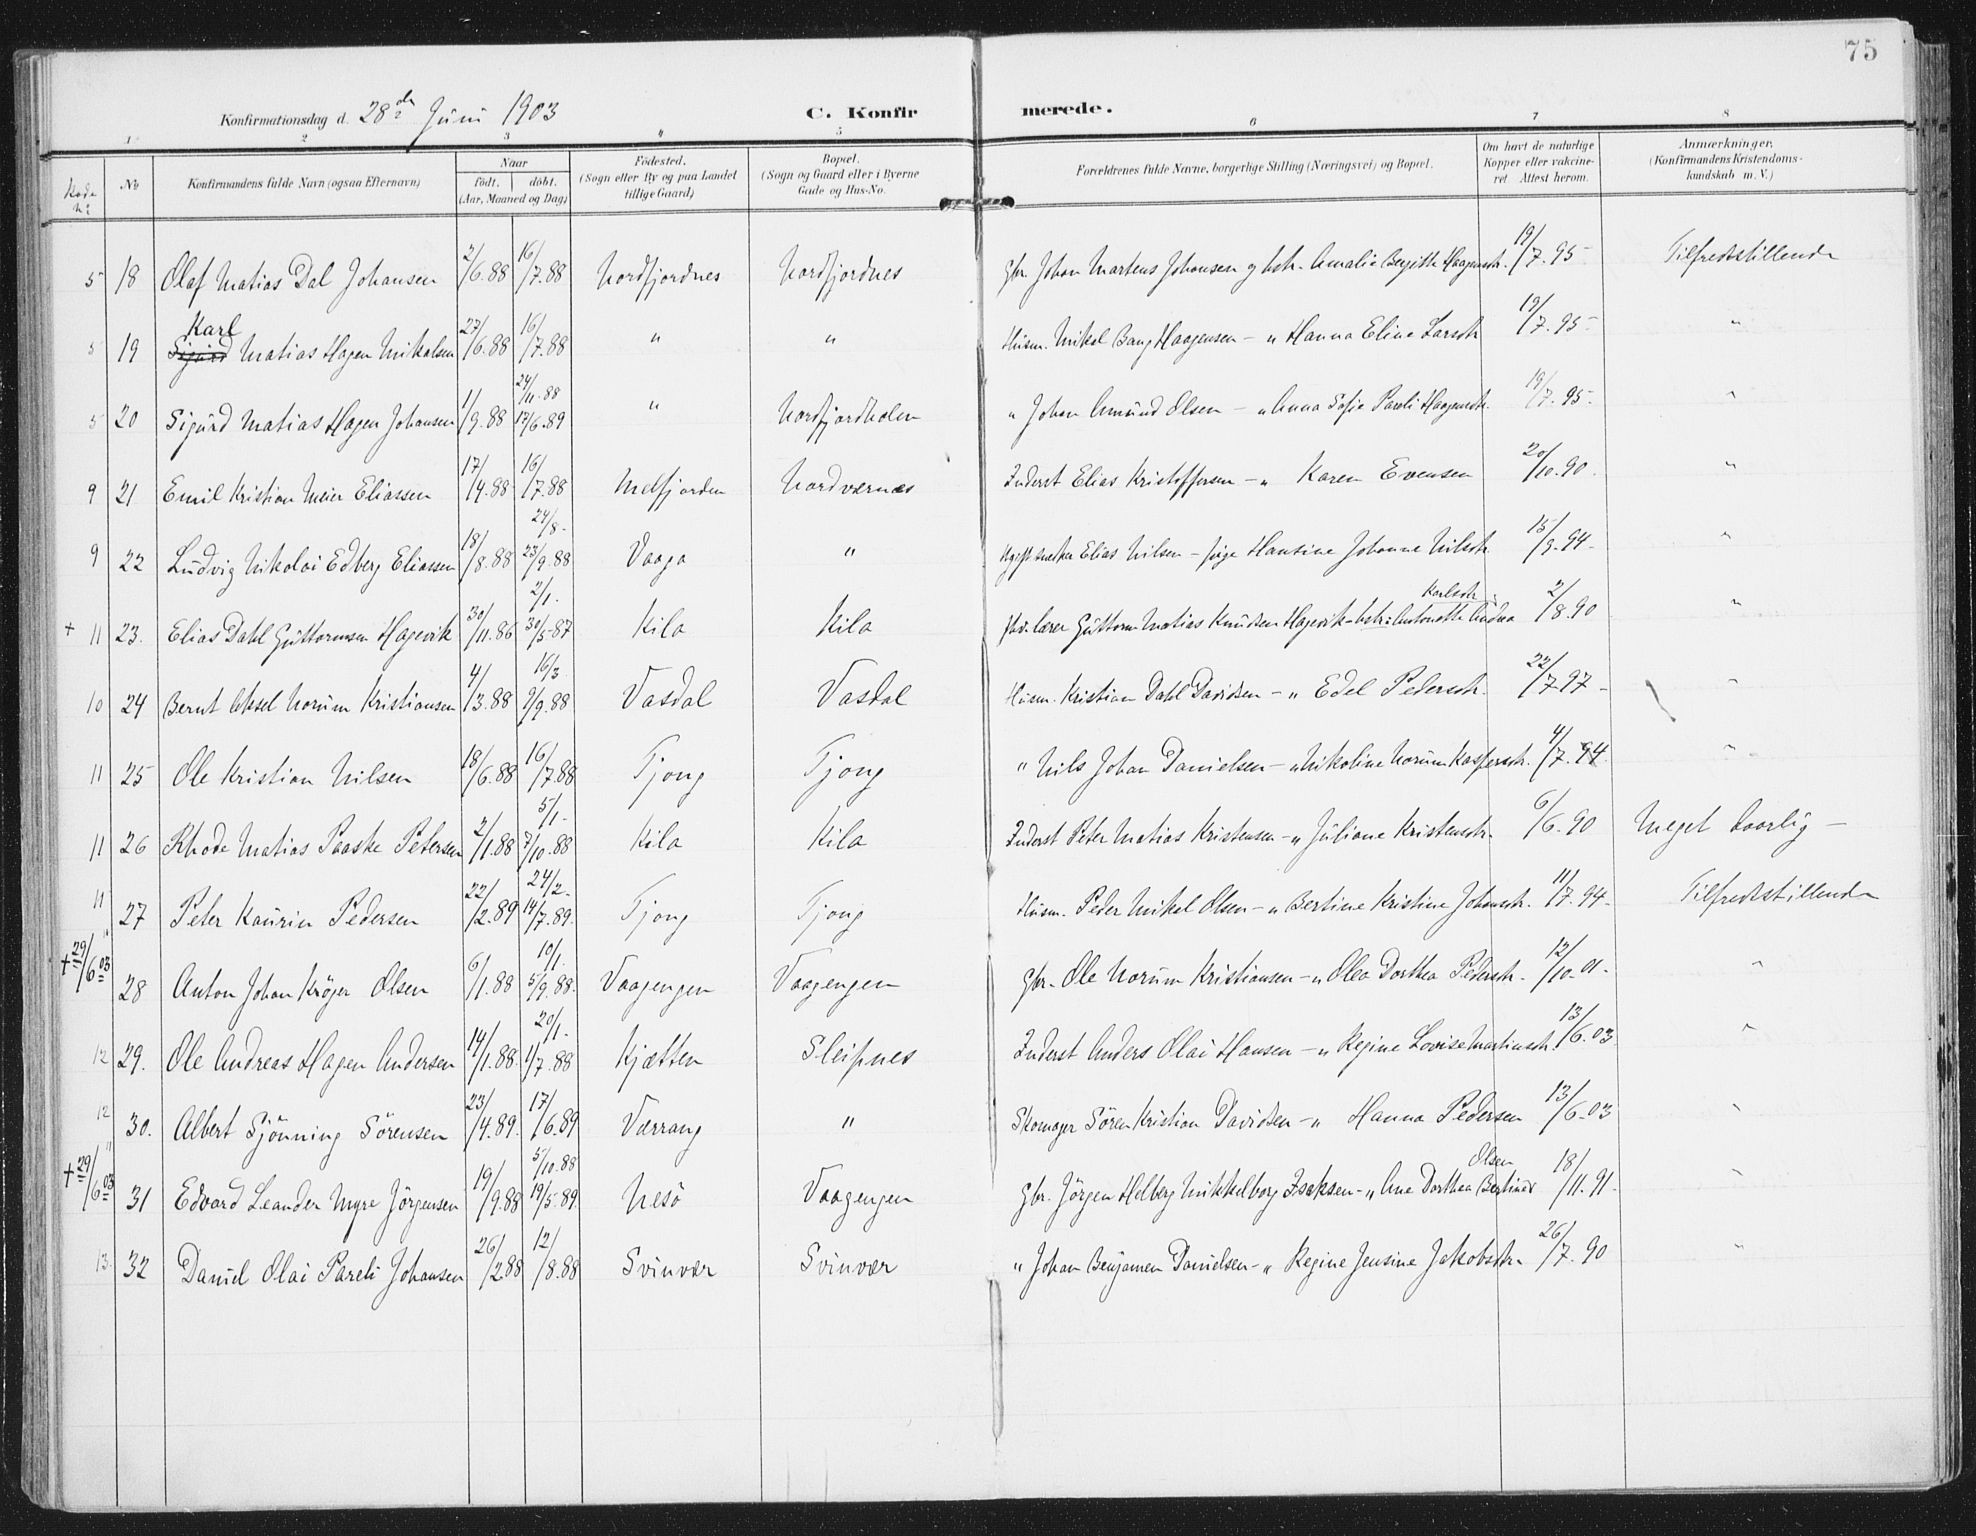 75
Konfirmationsdag d. 28de Juni 1903
C. Konfirmerede.
1 2 3 4 5 6 7 8
Kode Nr
No
Konfirmandens fulde Navn (ogsaa Efternavn)
Naar
födt. döbt.
(Aar, Maaned og Dag)
Födested.
(Sogn eller By og paa Landet
tillige Gaard)
Bopæl.
(Sogn og Gaard eller i Byerne
Gade og Hus-No.
Forældrenes fulde Navne, borgerlige Stilling (Næringsvei) og Bopæl.
Om havt de naturlige
Kopper eller vakcine-
ret. Attest herom.
Anmærkninger.
(Konfirmandens Kristendoms-
kundskab m. V.)
5 18 Olaf Matias Dal Johansen 2/6.88 16/7.88 Nordfjordnes Nordfjordnes Gbr. Johan Martens Johansen og hstr. Amalie Bergitte Haagenstr. 19/7.95 Tilfredsstillende
5 19 Karl Sigurd Matias Hagen Mikalsen 27/6.88 16/7.88 " " Husm. Mikal Bang Haagensen - " Hanna Eline Larsdtr 19/7.95 "
5 20 Sigurd Matias Hagen Johansen 1/9.88 24/11.88 17/6.89 " Nordfjordholm " Johan Amund Olsen - " Anna Sofie Pareli Haagenstr. 19/7.95 "
9 21 Emil Kristian Meier Eliassen 17/4.88 16/7.88 Melfjorden Nordværnes Inderst Elias Kristoffersen - " Karen Evensen 20/10.90 "
9 22 Ludvig Nikolai Edberg Eliassen 18/8.88 24/8. 23/9.88 Vaaga " Ugift snekker Elias Nilsen - pige Hansine Johanne Nilsdtr 15/9.94 "
+ 11 23. Elias Dahl Guttormsen Hagevik 30/11.86 2/1. 30/5.87 Kila Kila lærer Guttorm Matias Knudsen Hagevik - hstr: Antonette Karlsdtr 2/8.90 "
10 24 Bernt Aksel Norum Kristiansen 4/3.88 16/3. 9/9.88 Vasdal Vasdal Husm. Kristian Dahl Davidsen - " Edel Pedersdtr. 22/7.97 "
11 25 Ole Kristian Nilsen 18/6.88 16/7.88 Tjong Tjong " Nils Johan Danielsen - " Nikoline Norum Kaspersdtr. 4/7.94 "
11 26 Rhode Matias Paaske Petersen 2/1.88 5/1. 7/10.88 Kila Kila Inderst Peter Matias Kristensen - " Juliane Kristensdtr. 6/6.90 Meget daarlig -
11 27 Peter Kaurin Pedersen 22/2.89 24/2. 14/7.89. Tjong Tjong Husm. Peder Mikal Olsen - " Bertine Kristine Johansdtr. 11/7.94 Tilfredsstillende
+ 29/6 03 11 28 Anton Johan Krøger Olsen 6/1.88 10/1. 5/9.88. Vaagengen Vaagengen Gbr. Ole Norum Kristiansen - " Olea Dorthea Pedersdtr. 12/10.01. "
12 29. Ole Andreas Hagen Andersen 14/1.88. 20/1. 1/7.88 Kjætten Sleipnes Inderst Anders Olai Hansen - " Regine Lovise Martinsdtr. 13/6.03 "
12 30. Albert Sjönning Sörensen 23/4.89. 17/6.89 Værrang " Skomager Sören Kristian Davidsen - " Hanna Pedersen 13/6.03 "
+ 29/6 03 11 31 Edvard Leander Myre Jörgensen 19/9.88 5/10.88 19/5.89. Nesö Vaagengen Gbr. Jörgen Helberg Mikkelborg Isaksen - " Ane Dorthea Bertines Olsen 18/11.91 "
13. 32 Daniel Olai Pareli Johansen 26/2.88 12/8.88 Svinvær Svinvær " Johan Benjamen Danielsen - " Regine Jensine Jakobsdtr. 26/7.90 "